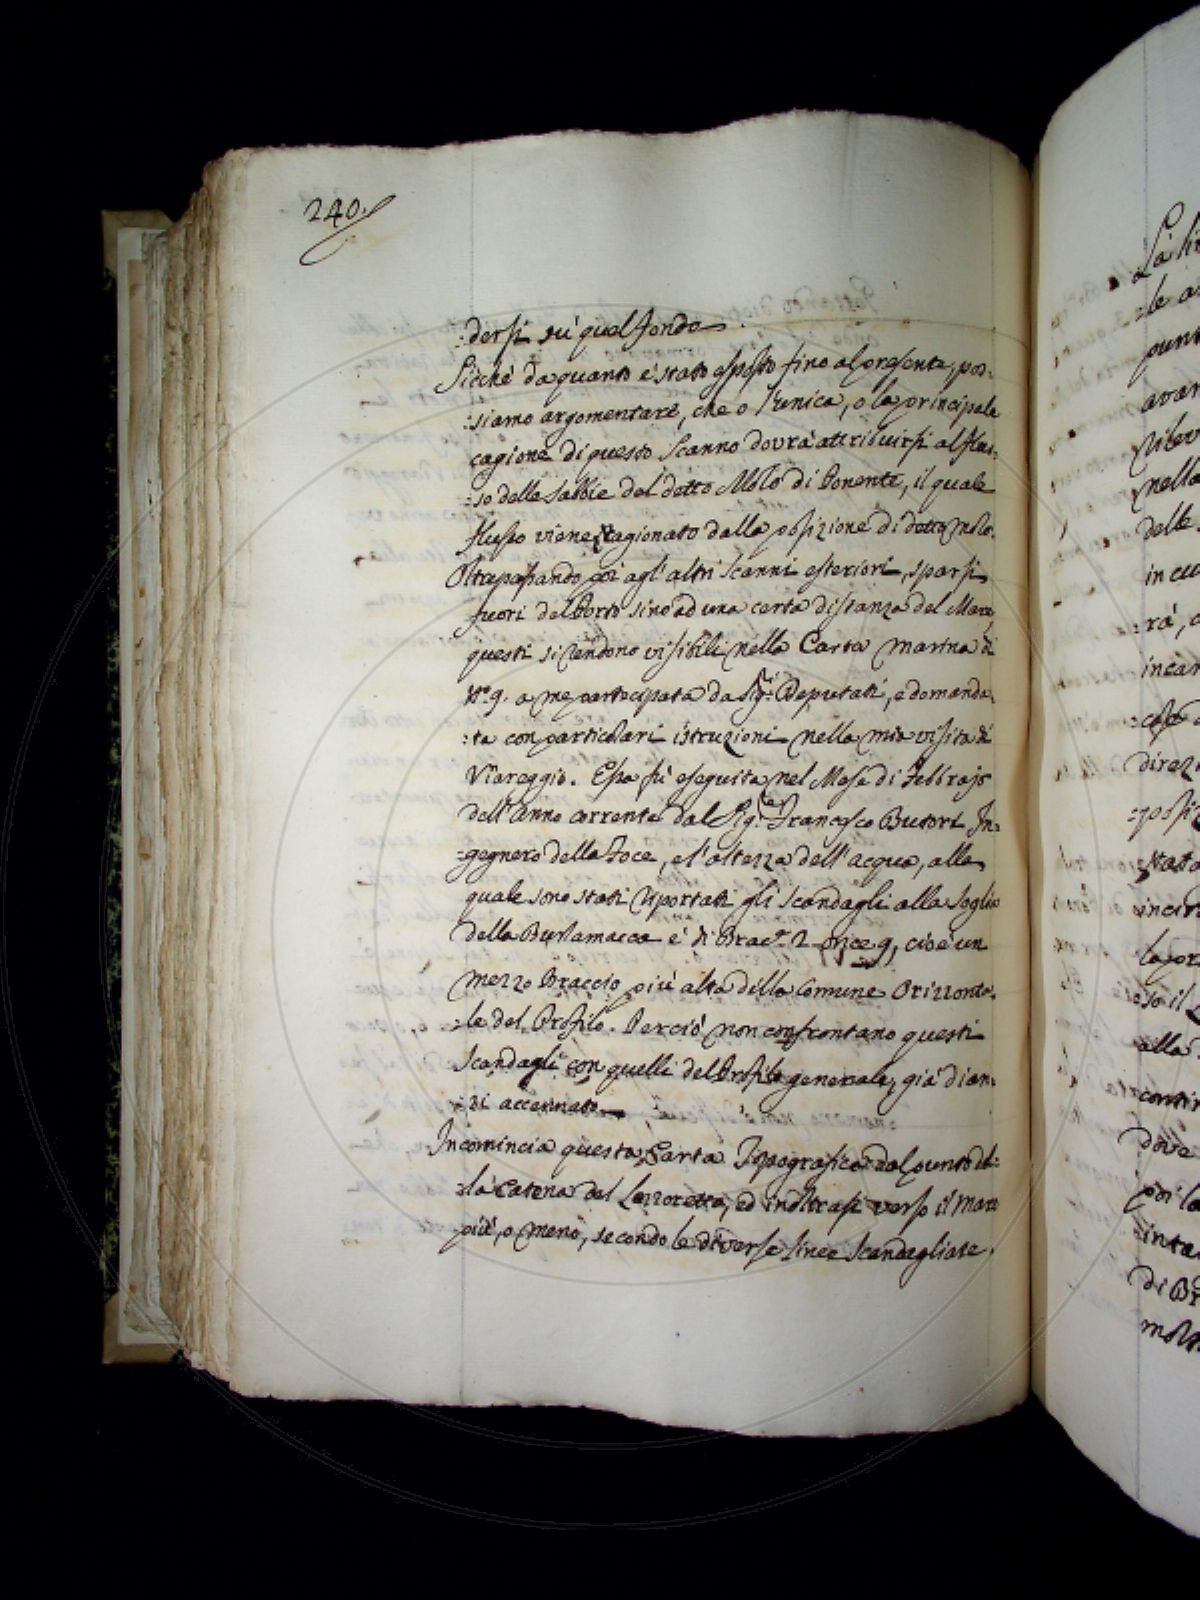 240.
:dersi sù quel fondo.
Sicchè da quanto è stato esposto fino al presente, pos:
:siamo argomentare, che o l'unica, o la principale
cagione di questo Scanno dovrà attribuirsi al flus:
:so delle sabbie del detto Molo di Ponente, il quale
flusso viene cagionato dalla posizione di detto molo.
Oltrepassando poi agl'altri Scanni esteriori, sparsi
fuori del Porto sino ad una certa distanza del Mare,
questi si rendono visibili nella Carta marina di
N.º 9. a me partecipata da Sig.ri Deputati, e domanda:
:ta con particolari istruzioni nella mia visita di
Viareggio. Essa fù eseguita nel Mese di Febbrajo
dell'Anno corrente dal Sig.re Francesco Butori In:
:gegnero della Foce, e l'altezza dell'acqua, alla
quale sono stati riportati gli Scandagli alla Soglia
della Burlamacca è di Brac.ª 2 once 9, cioè un
mezzo Braccio più alta della Comune Orizzonta:
:le del Profilo. Perciò non confrontano questi
Scandagli con quelli del Profilo generale, già dian:
:zi accennato.
Incomincia questa Carta Topografica dal punto del:
:la Catena del Lazzoretto, ed inoltrasi verso il Mare
più, o meno, secondo le diverse linee Scandagliate.
La li
:le a
punt
avan
rilev
nella
delle
in cu
:rà, a
incar
direzi
:posiz
stato
incir
la por
:so il
alla
contin
dove
poi la
inta
di Br
molo